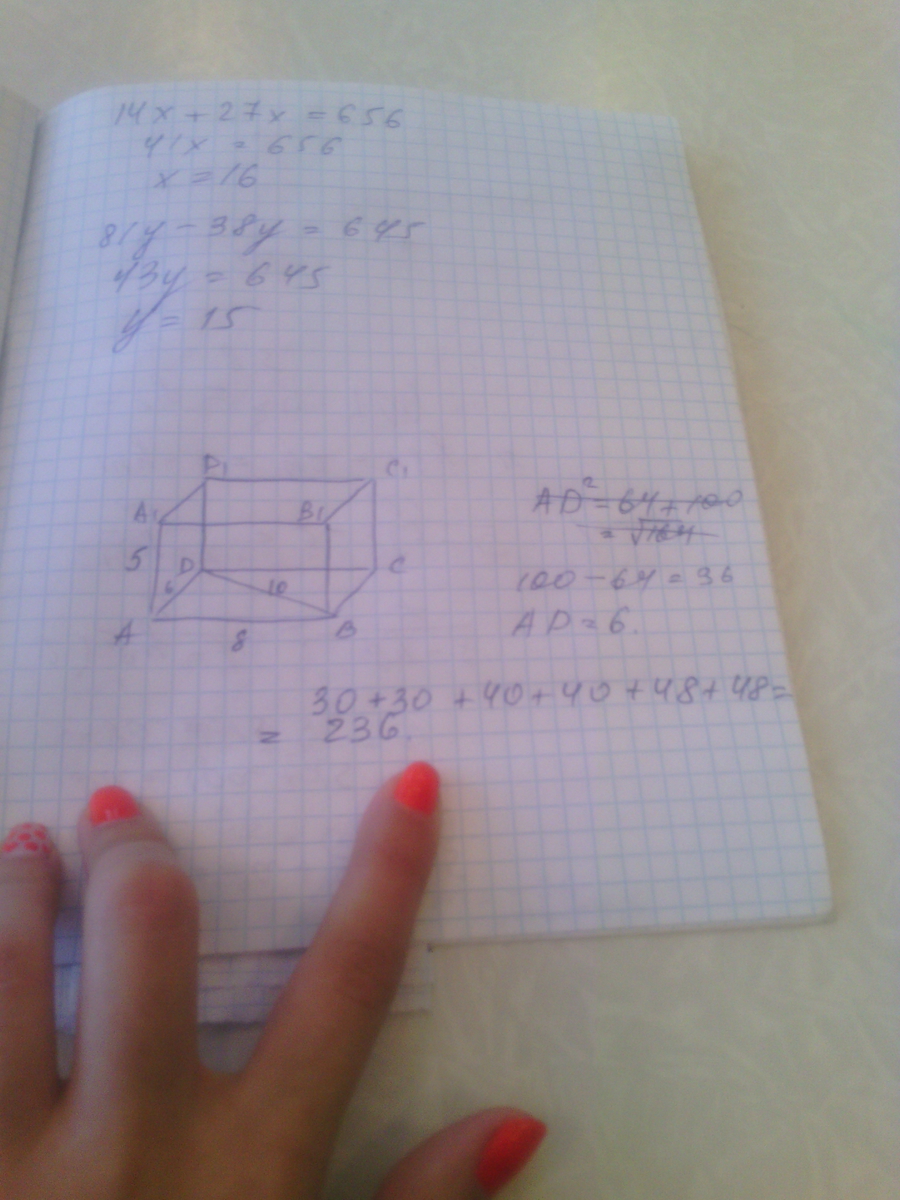 14x + 27x = 656
41x = 656
x = 16
81y - 38y = 645
43y = 645
y = 15
D₁ C₁
A₁ B₁
5 D C
6 10
A B
8
AD² = 64 + 100
= √164
100 - 64 = 36
AD = 6.
30 + 30 + 40 + 40 + 48 + 48 =
= 236.